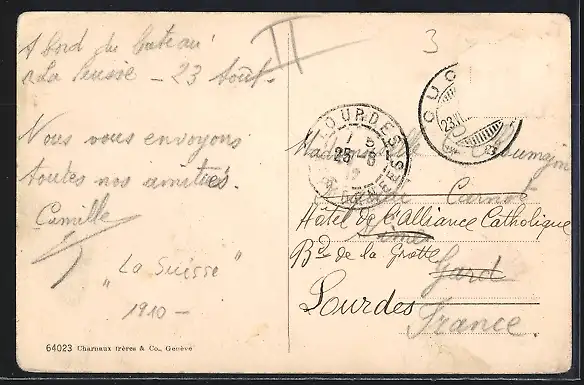 A bord du bateau
"La Suisse" - 23 Août -
II
3
Nous vous envoyons
toutes nos amitiés.
Camille
"La Suisse"
1910 -
64023 Charnaux frères & Co., Genève
LOURDES
25 - 8
OUCHY
23.VIII
Mademoiselle
Carnot
Hôtel de l'Alliance Catholique
Nîmes
Bd de la Grotte
Gard
Lourdes
France.